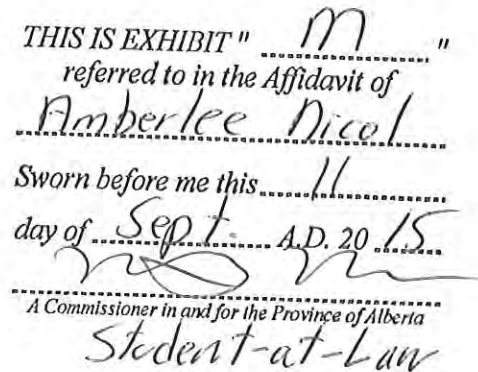 THIS IS EXHIBIT " M "
referred to in the Affidavit of
Amberlee Nicol
Sworn before me this 11
day of Sept. A.D. 20 15
A Commissioner in and for the Province of Alberta
Student-at-Law